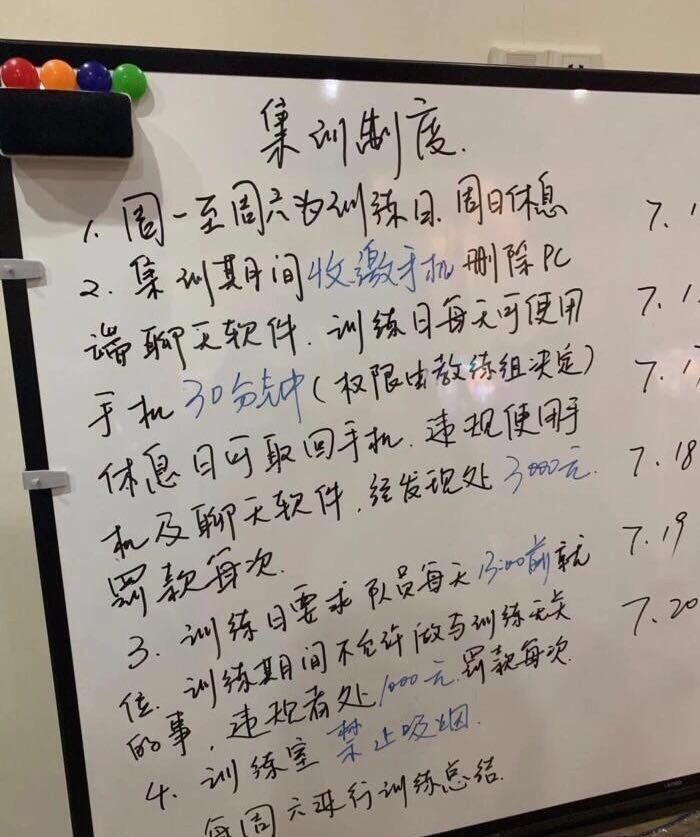 集训制度.
1. 周一至周六为训练日.周日休息
2. 集训期间收缴手机删除PC
端聊天软件.训练日每天可使用
手机30分钟(权限由教练组决定)
休息日可取回手机.违规使用手
机及聊天软件,经发现处3000元
罚款每次.
3. 训练日要求队员每天13:00前就
位.训练期间不允许做与训练无关
的事,违规者处1000元罚款每次
4. 训练室禁止吸烟.
每周六进行训练总结.
7.18
7.19
7.20